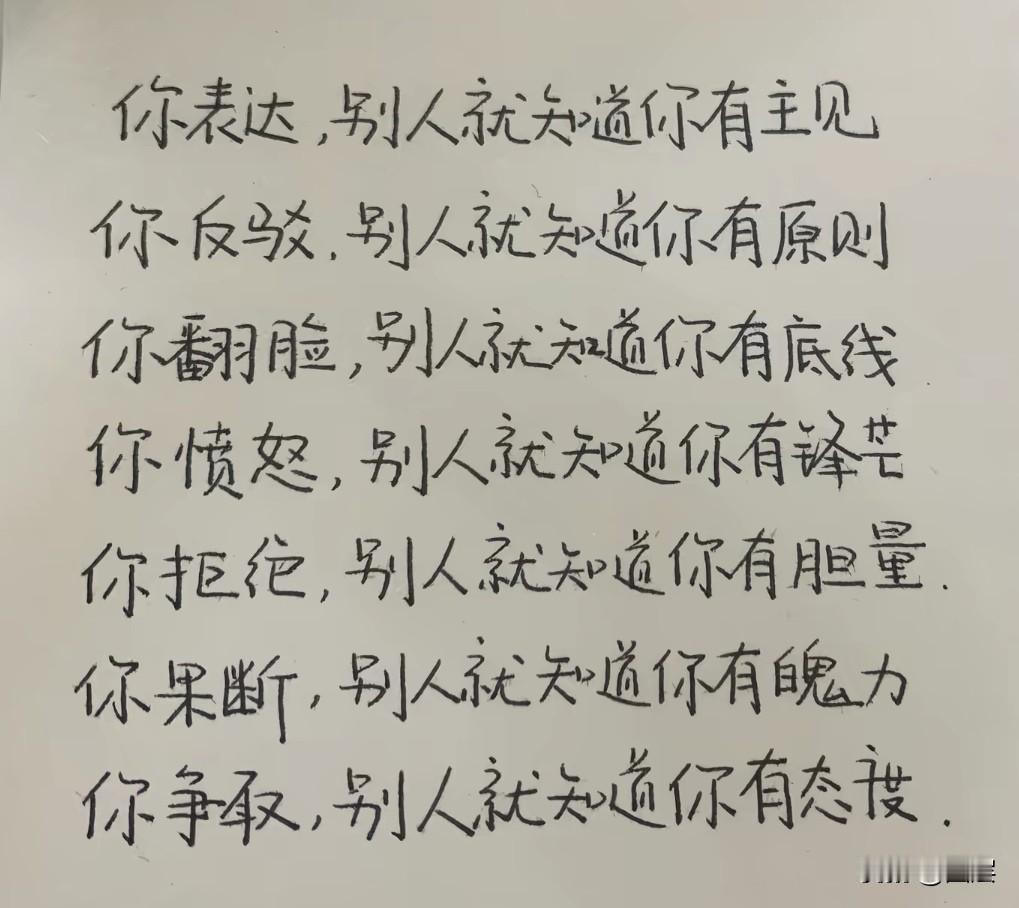 你表达,别人就知道你有主见
你反驳.别人就知道你有原则
你翻脸,别人就知道你有底线.
你愤怒,别人就知道你有锋芒
你拒绝,别人就知道你有胆量.
你果断,别人就知道你有魄力
你争取,别人就知道你有态度.